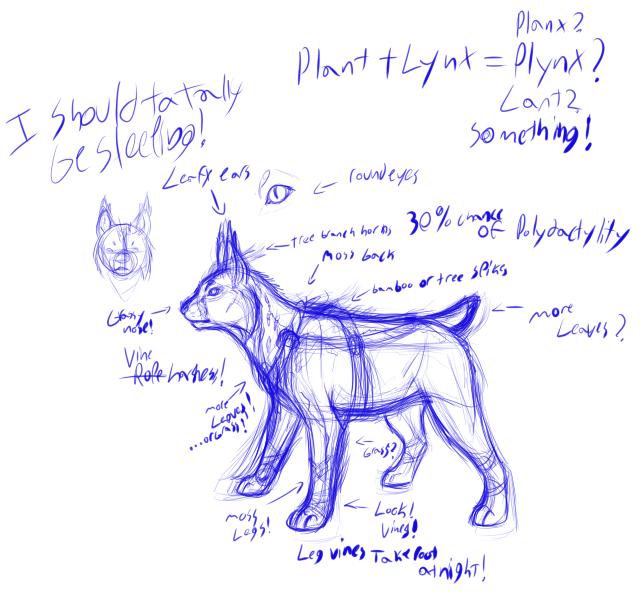 Planx?
Plant + Lynx = Plynx?
Lant?
Something!
I should tatally
be sleeping!
Leafy ears
round eyes
tree branch horns
30% chance
of Polydactylity
Moss back
bamboo or tree spikes
nose!
more
Leaves?
Vine
Rope harness!
more
Leaves!
...or Grass!
Grass?
Moss
Legs!
Look!
Vines!
Leg vines Take Root
at night!